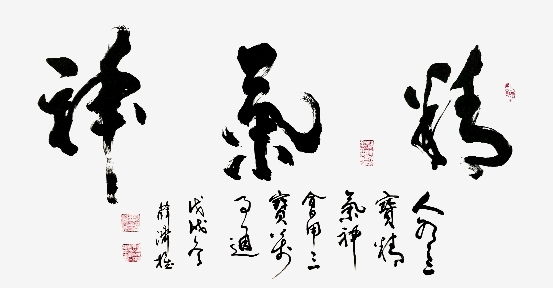 精氣神
人有三
寶精
氣神
會用三
寶萬
事通
戊戌冬